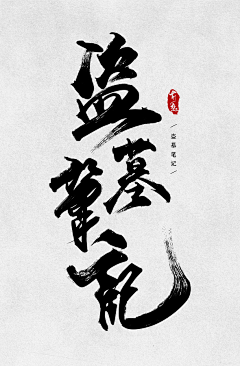 盗墓笔记
盗墓笔记